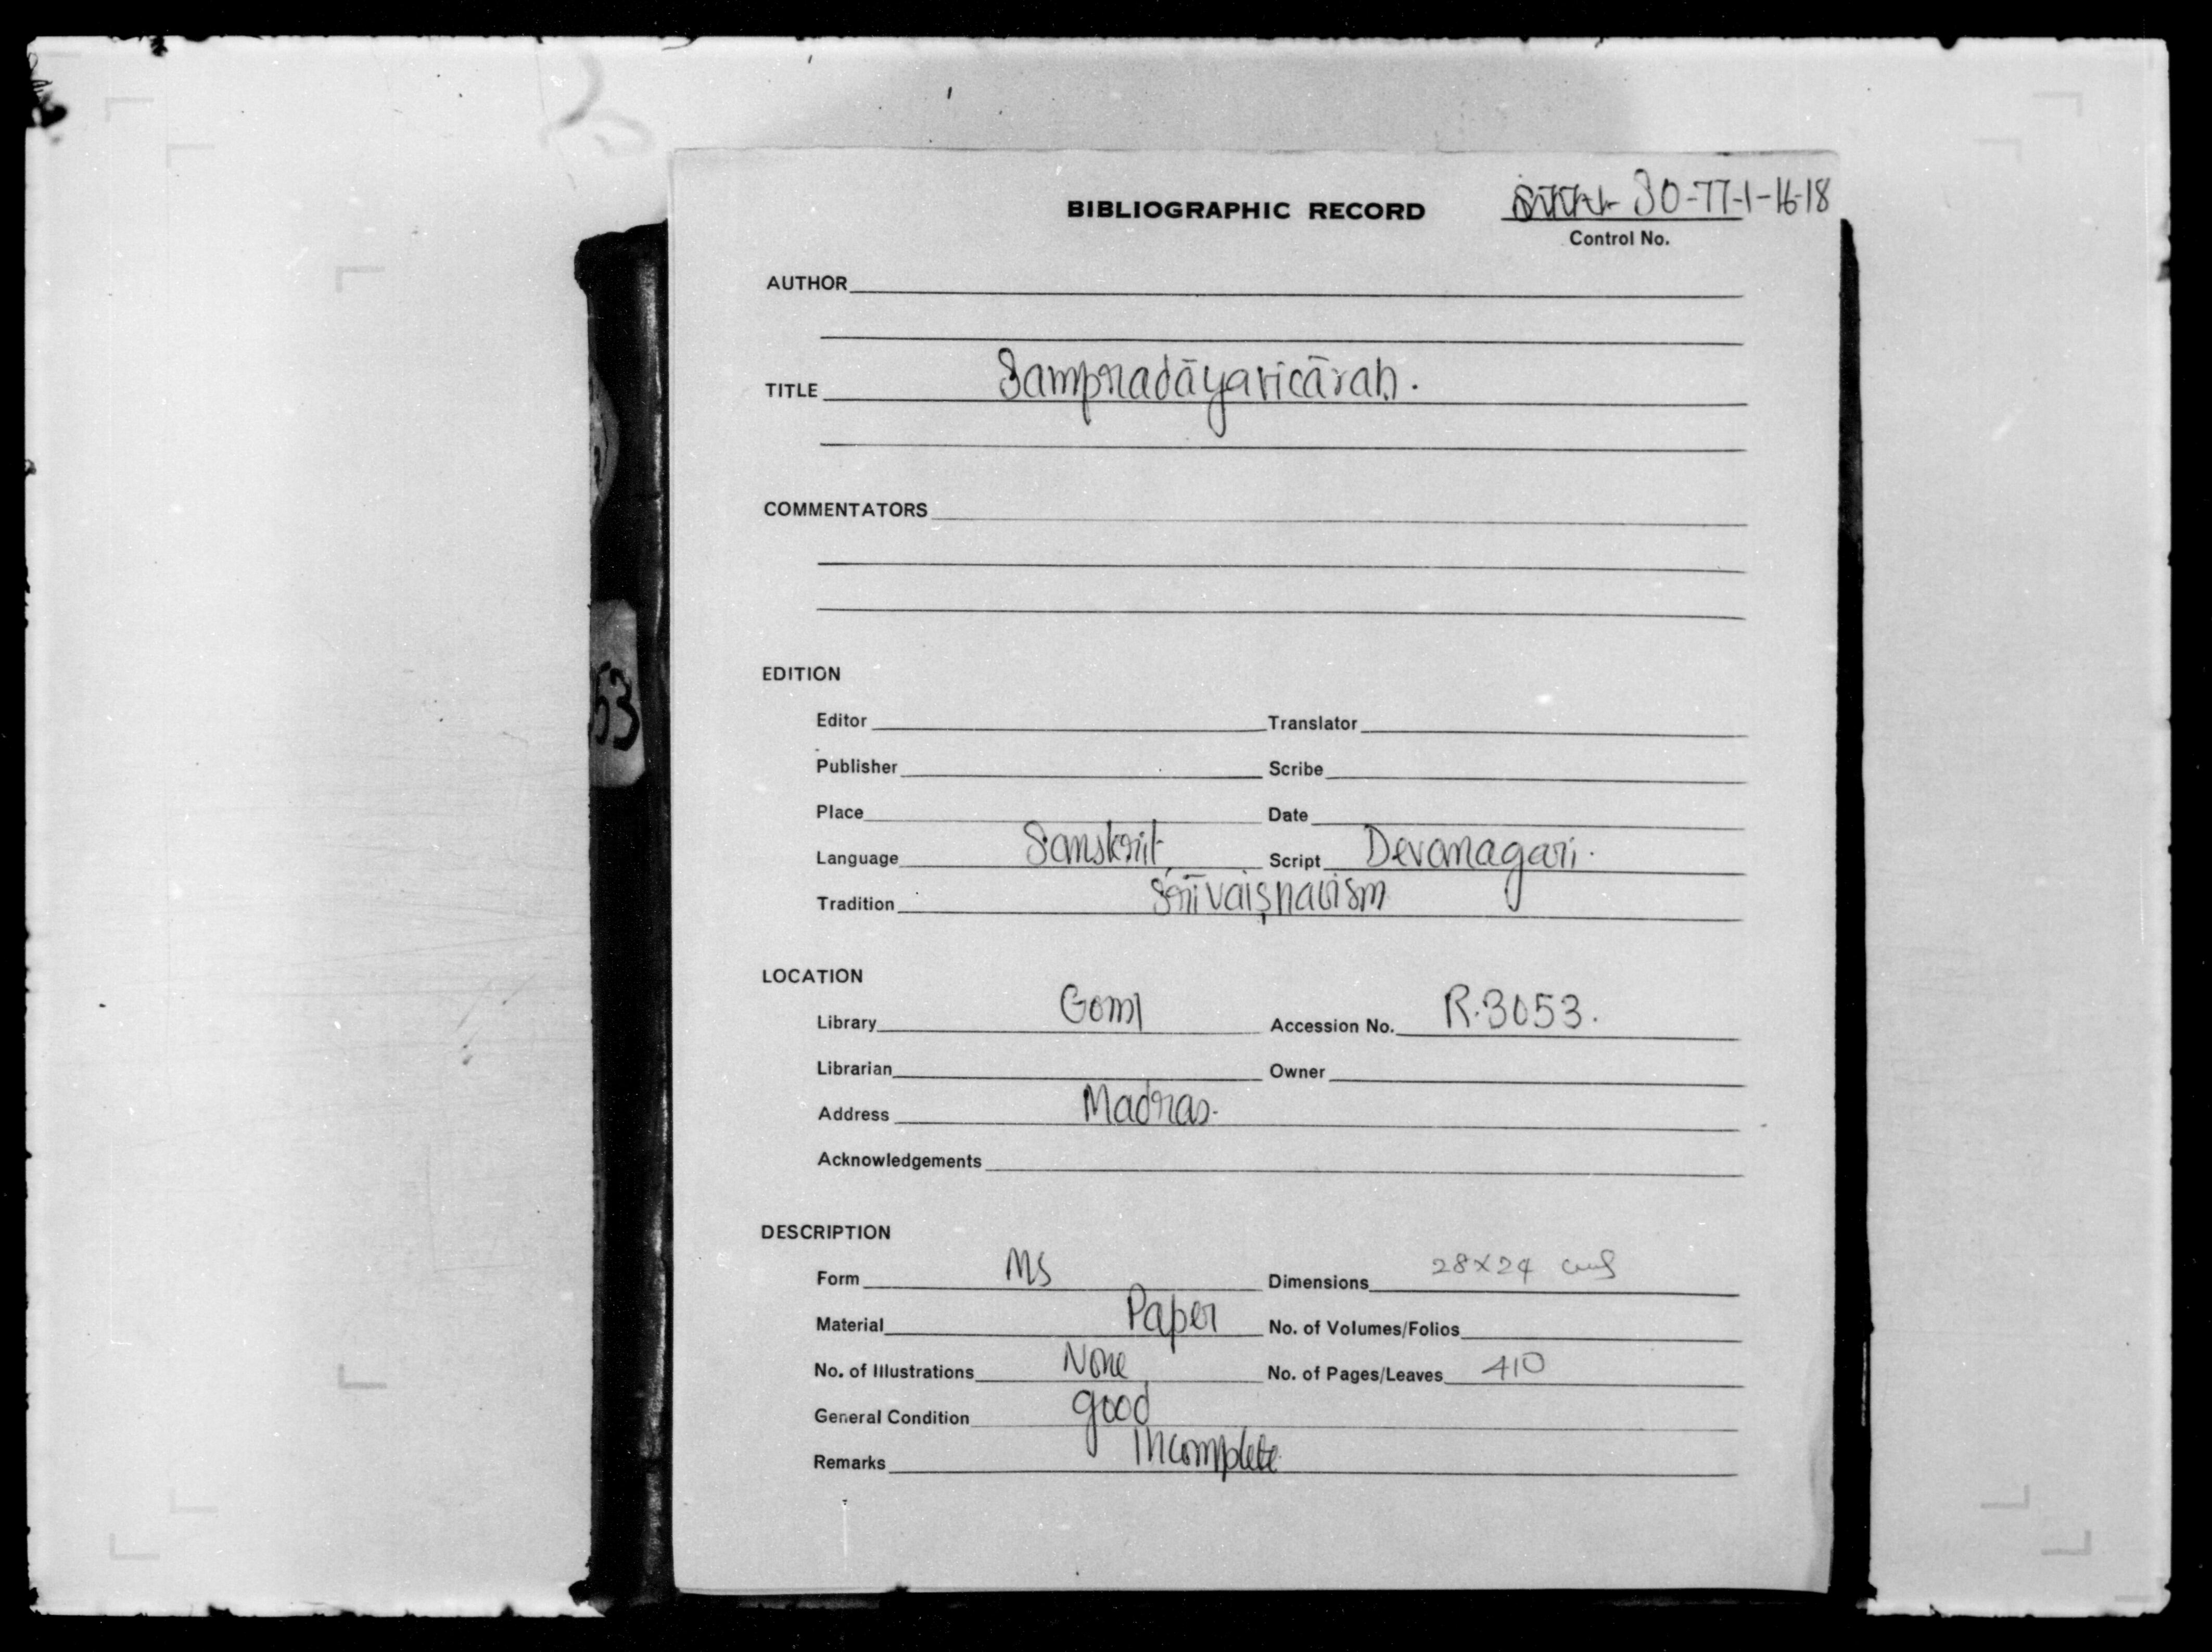 BIBLIOGRAPHIC RECORD
SO-77-1-16-18
Control No.
AUTHOR
TITLE Sampradāyavicāraḥ.
COMMENTATORS
EDITION
Editor Translator
Publisher Scribe
Place Date
Language Sanskrit Script Devanagari.
Tradition Śrīvaiṣnavism
LOCATION
Library Goml Accession No. R.3053.
Librarian Owner
Address Madras.
Acknowledgements
DESCRIPTION
Form MS Dimensions 28x24 cms
Material Paper No. of Volumes/Folios
No. of Illustrations None No. of Pages/Leaves 410
General Condition good
Remarks Incomplete
53